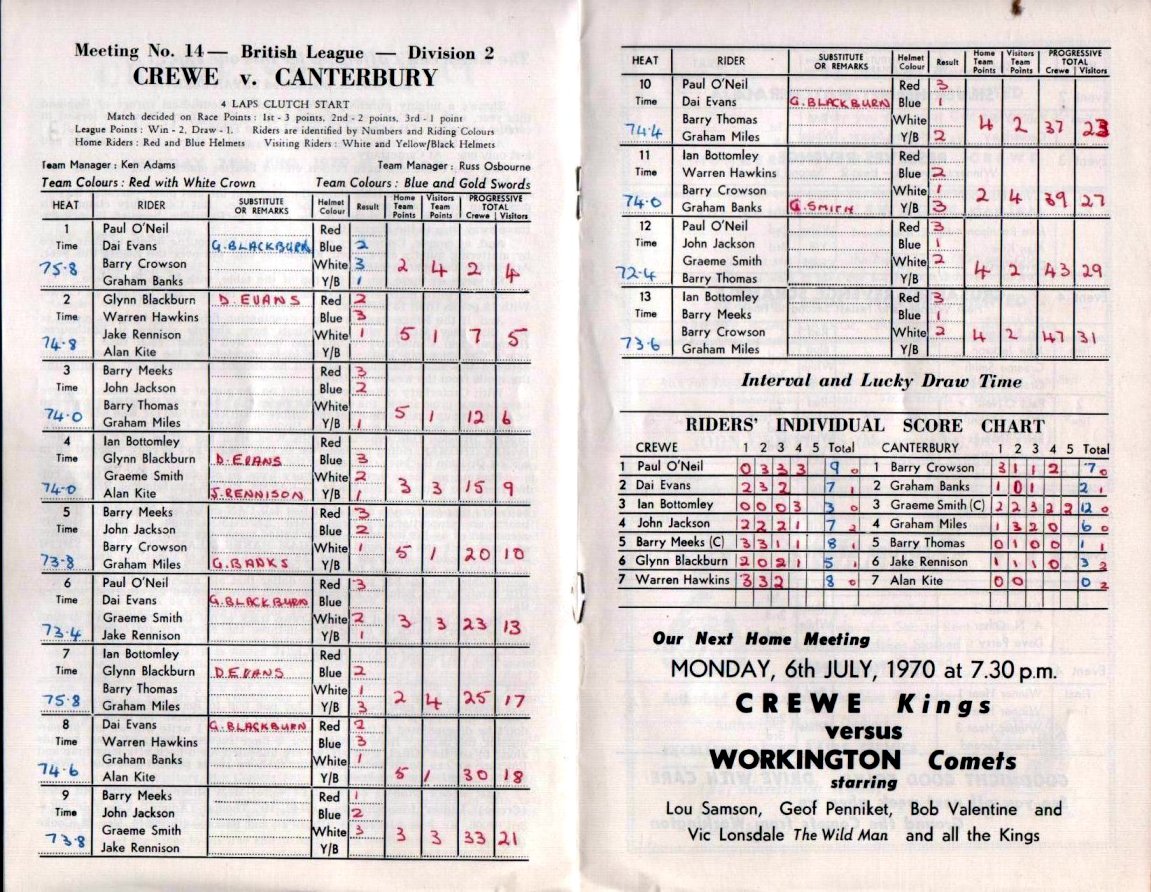 Meeting No. 14 — British League — Division 2
CREWE v. CANTERBURY
4 LAPS CLUTCH START
Match decided on Race Points : 1st - 3 points, 2nd - 2 points, 3rd - 1 point
League Points : Win - 2, Draw - 1. Riders are identified by Numbers and Riding Colours
Home Riders : Red and Blue Helmets Visiting Riders : White and Yellow/Black Helmets
Team Manager : Ken Adams Team Manager : Russ Osbourne
Team Colours : Red with White Crown Team Colours : Blue and Gold Swords
HEAT RIDER SUBSTITUTE OR REMARKS Helmet Colour Result Home Team Points Visitors Team Points PROGRESSIVE TOTAL Crewe Visitors
1 Paul O'Neil Red
Time Dai Evans G. BLACKBURN Blue 2
75·8 Barry Crowson White 3 2 4 2 4
Graham Banks Y/B 1
2 Glynn Blackburn D. EVANS Red 2
Time Warren Hawkins Blue 3
74·8 Jake Rennison White 1 5 1 7 5
Alan Kite Y/B
3 Barry Meeks Red 3
Time John Jackson Blue 2
74·0 Barry Thomas White 5 1 12 6
Graham Miles Y/B 1
4 Ian Bottomley Red
Time Glynn Blackburn D. EVANS Blue 3
74·0 Graeme Smith White 2 3 3 15 9
Alan Kite J. RENNISON Y/B 1
5 Barry Meeks Red 3
Time John Jackson Blue 2
73·8 Barry Crowson White 1 5 1 20 10
Graham Miles G. BANKS Y/B
6 Paul O'Neil Red 3
Time Dai Evans G. BLACKBURN Blue
73·4 Graeme Smith White 2 3 3 23 13
Jake Rennison Y/B 1
7 Ian Bottomley Red
Time Glynn Blackburn D EVANS Blue 2
75·8 Barry Thomas White 1 2 4 25 17
Graham Miles Y/B 3
8 Dai Evans G. BLACKBURN Red 2
Time Warren Hawkins Blue 3
74·6 Graham Banks White 1 5 1 30 18
Alan Kite Y/B
9 Barry Meeks Red 1
Time John Jackson Blue 2
73·8 Graeme Smith White 3 3 3 33 21
Jake Rennison Y/B
HEAT RIDER SUBSTITUTE OR REMARKS Helmet Colour Result Home Team Points Visitors Team Points PROGRESSIVE TOTAL Crewe Visitors
10 Paul O'Neil Red 3
Time Dai Evans G. BLACKBURN Blue 1
74·4 Barry Thomas White 4 2 37 23
Graham Miles Y/B 2
11 Ian Bottomley Red
Time Warren Hawkins Blue 2
74·0 Barry Crowson White 1 2 4 39 27
Graham Banks G. SMITH Y/B 3
12 Paul O'Neil Red 3
Time John Jackson Blue 1
72·4 Graeme Smith White 2 4 2 43 29
Barry Thomas Y/B
13 Ian Bottomley Red 3
Time Barry Meeks Blue 1
73·6 Barry Crowson White 2 4 2 47 31
Graham Miles Y/B
Interval and Lucky Draw Time
RIDERS' INDIVIDUAL SCORE CHART
CREWE 1 2 3 4 5 Total CANTERBURY 1 2 3 4 5 Total
1 Paul O'Neil 0 3 3 3 9 0 1 Barry Crowson 3 1 1 2 7 0
2 Dai Evans 2 3 2 7 1 2 Graham Banks 1 0 1 2 1
3 Ian Bottomley 0 0 0 3 3 0 3 Graeme Smith (C) 2 2 3 2 2 12 0
4 John Jackson 2 2 2 1 7 2 4 Graham Miles 1 3 2 0 6 0
5 Barry Meeks (C) 3 3 1 1 8 1 5 Barry Thomas 0 1 0 0 1 1
6 Glynn Blackburn 2 0 2 1 5 1 6 Jake Rennison 1 1 1 0 3 2
7 Warren Hawkins 3 3 2 8 0 7 Alan Kite 0 0 0 2
Our Next Home Meeting
MONDAY, 6th JULY, 1970 at 7.30 p.m.
CREWE Kings
versus
WORKINGTON Comets
starring
Lou Samson, Geof Penniket, Bob Valentine and
Vic Lonsdale The Wild Man and all the Kings